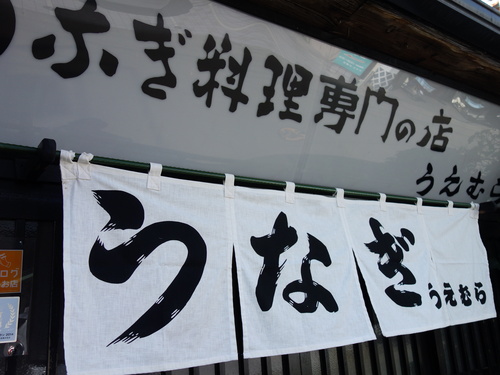 ふぎ料理専門の店
うえむら
うなぎ
うえむら
ログ
お店